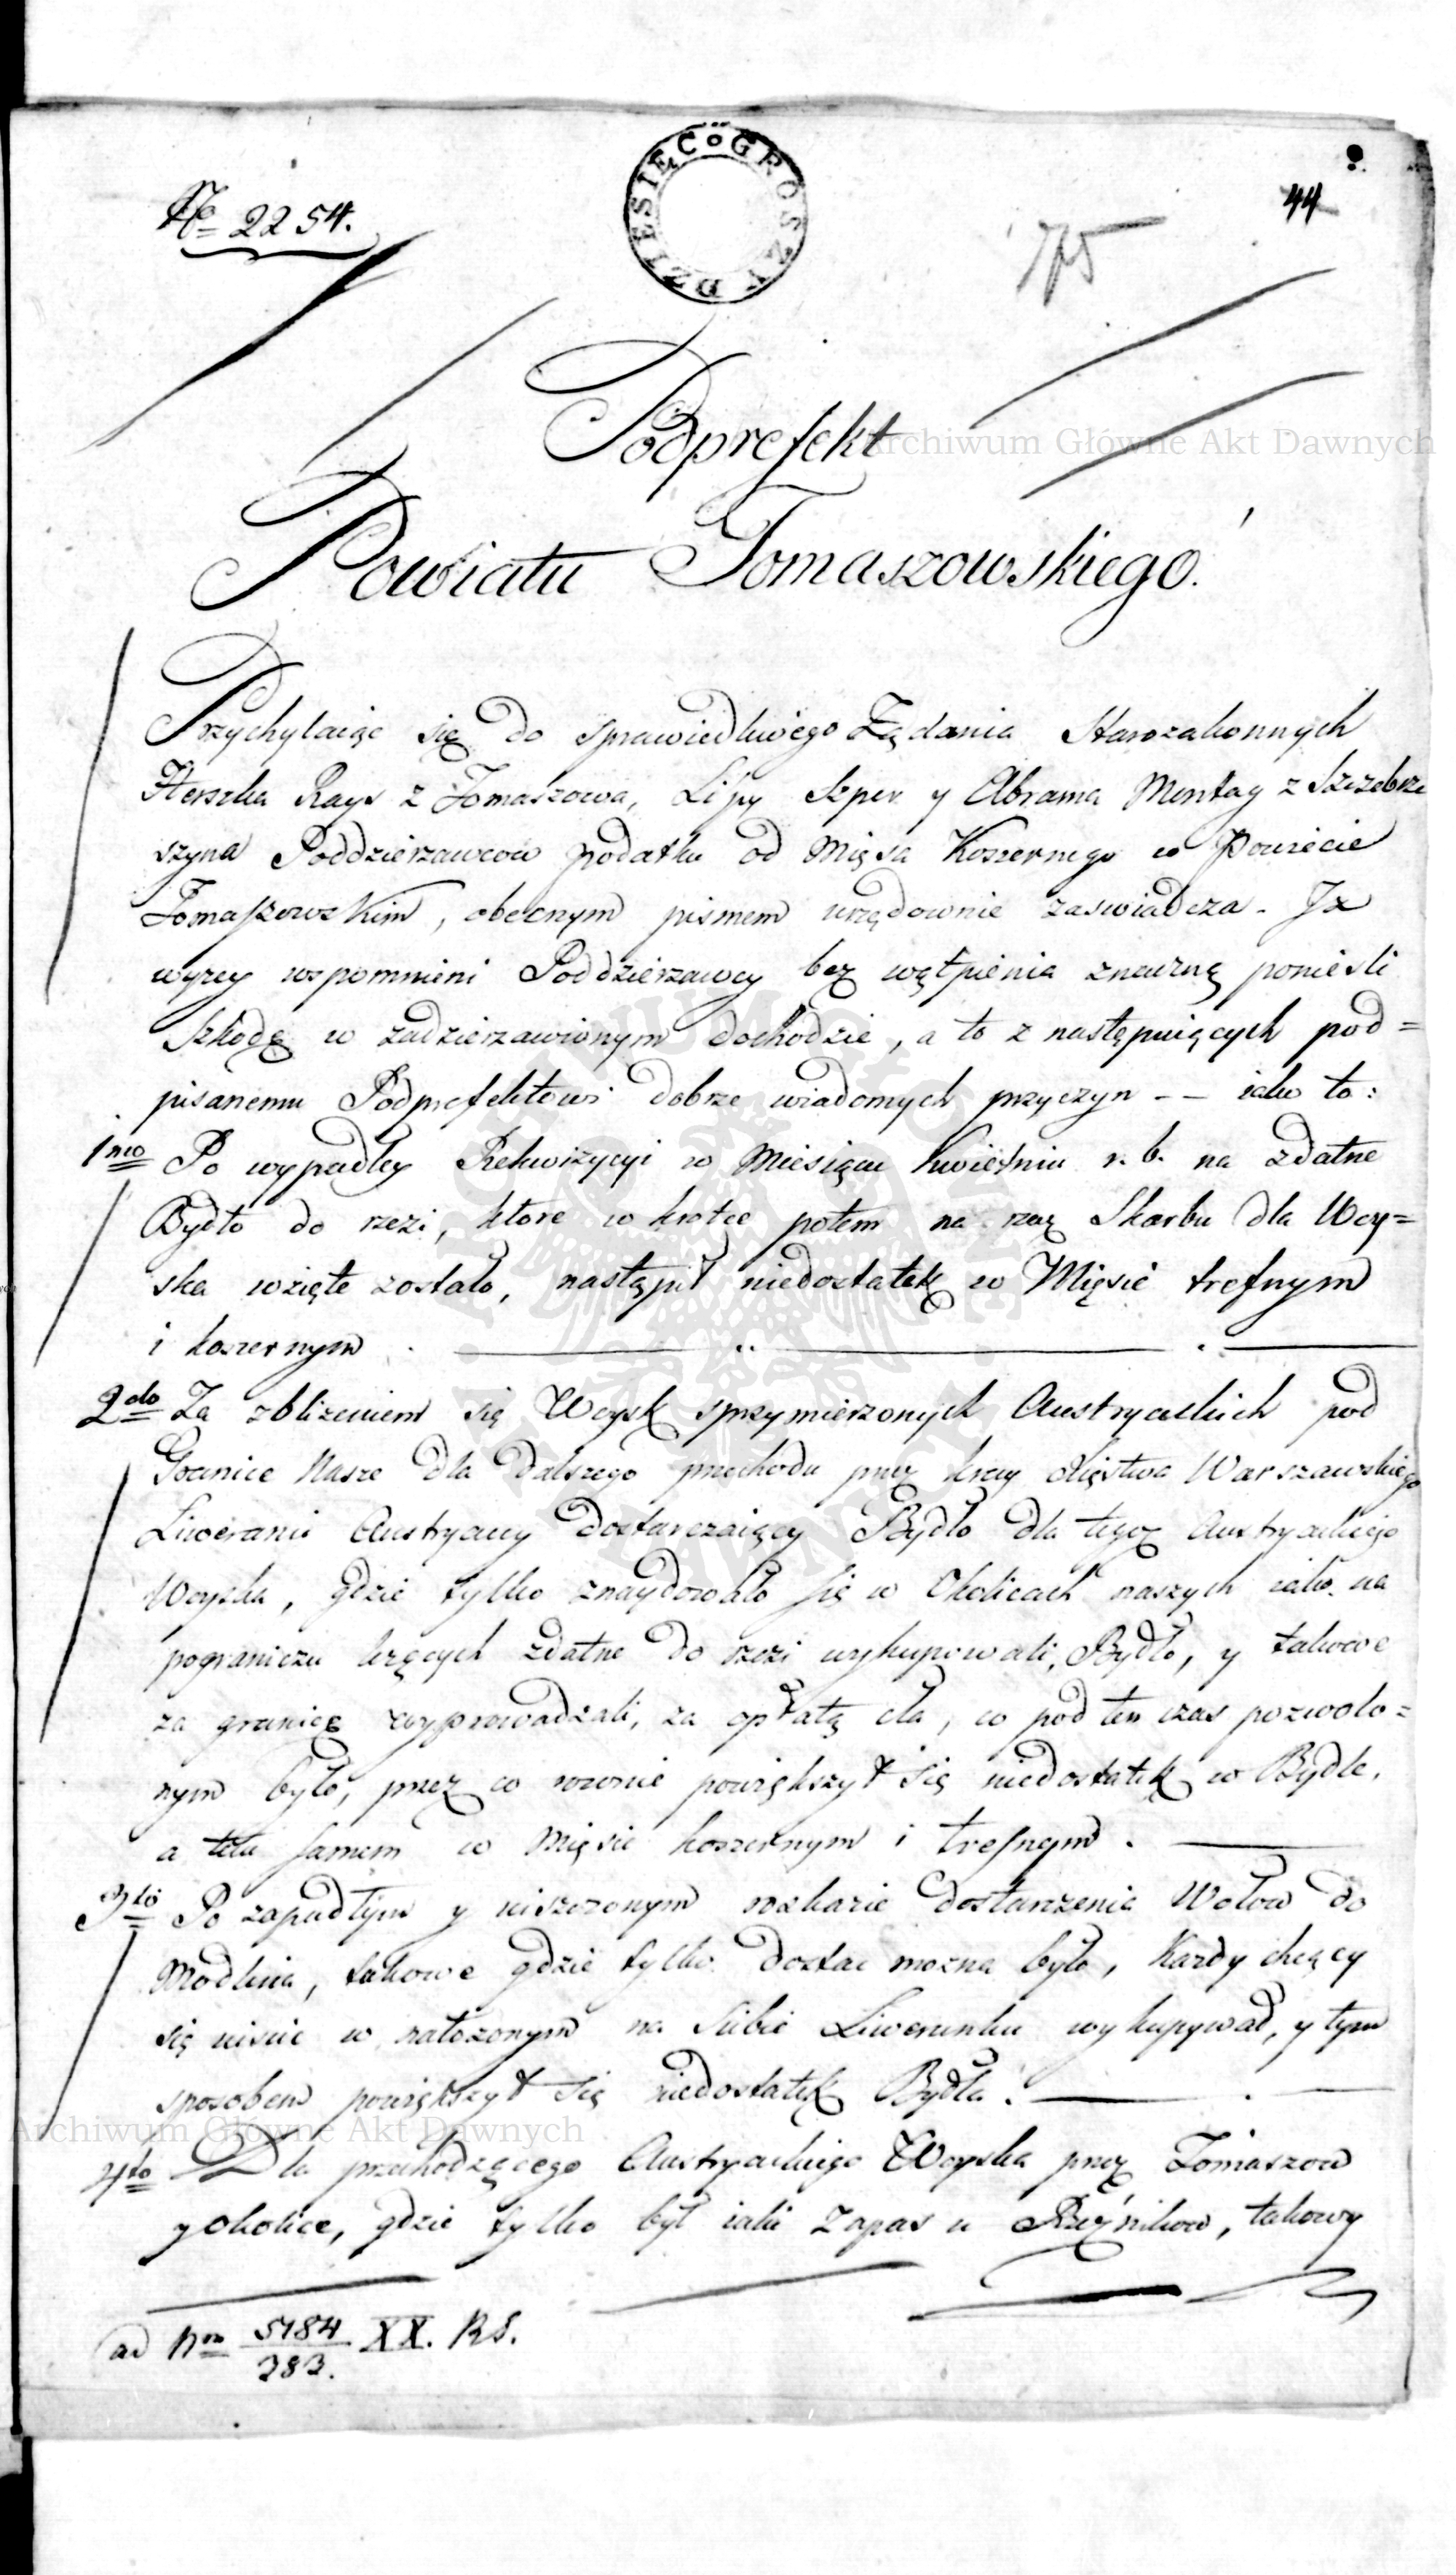 No 2254.
DZIESIĘĆ GROSZY
44
175
Podprefekt
Powiatu Tomaszowskiego.
Przychylaiąc się do sprawiedliwego Żądania Starozakonnych
Herszka Rays z Tomaszowa, Lipy Szper y Abrama Montag z Szczebrze
szyna Poddzierzawcow podatku od Mięsa Koszernego w Powiecie
Tomaszowskim, obecnym pismem urzędownie zaswiadcza. Jż
wyzey wspomnieni Poddzierzawcy bez wątpienia znaczną poniesli
Szkodę w zadzierzawionym dochodzie, a to z następuiących pod=
pisanemu Podprefektowi dobrze wiadomych przyczyn -- iako to:
1mo Po wypadłey Rekwizycyi w Miesiącu Kwietniu r. b. na zdatne
Bydło do rzezi, ktore w krotce potem na rzecz Skarbu dla Woy=
ska wzięte zostało, nastąpił niedostatek w Mięsie trefnym
i koszernym
2do Za zblizeniem się Woysk sprzymierzonych Austryackich pod
Granice Nasze dla dalszego przechodu przez kray Xięstwa Warszawskiego
Liweranci Austryaccy dostarczaiący Bydło dla tegoż Austryackiego
Woyska, gdzie tylko znaydowało się w Okolicach naszych iako na
pograniczu lezących zdatne do rzezi wykupowali Bydło, y takowe
za granicę wyprowadzali, za opłatą cła, co pod ten czas pozwolo=
nym było, przez co rownie powiększył się niedostatek w Bydle,
a tem samem w Mięsie koszernym i trefnym.
3tio Po zapadłym y uiszczonym rozkazie dostarczenia Wołow do
Modlina, takowe gdzie tylko dostac mozna było, Kazdy chcący
się uiscic w nałozonym na siebie Liwerunku wykupywał, y tym
sposobem powiększył się niedostatek Bydła.
4to Dla przechodzącego Austryackiego Woyska przez Tomaszow
y okolice, gdzie tylko był iaki Zapas u Rzeźnikow, takowy
ad Nrm 5184/282. XX. RS.
Archiwum Główne Akt Dawnych
Archiwum Główne Akt Dawnych
ARCHIWUM GŁÓWNE AKT DAWNYCH